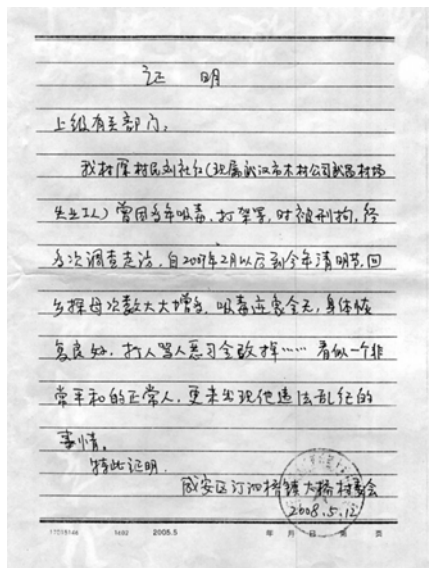 证 明
上级有关部门:
我村原村民刘社红(现属武汉市木材公司武昌材场
失业工人)曾因多年吸毒,打架等,时被刑拘,经
多次调查走访,自2007年2月以后到今年清明节,回
乡探母次数大大增多,吸毒迹象全无,身体恢
复良好,打人骂人恶习全改掉……看似一个非
常平和的正常人,更未发现他违法乱纪的
事情。
特此证明.
咸安区汀泗桥镇大桥村委会
2008.5.12
2005.5 年 月 日 第 页